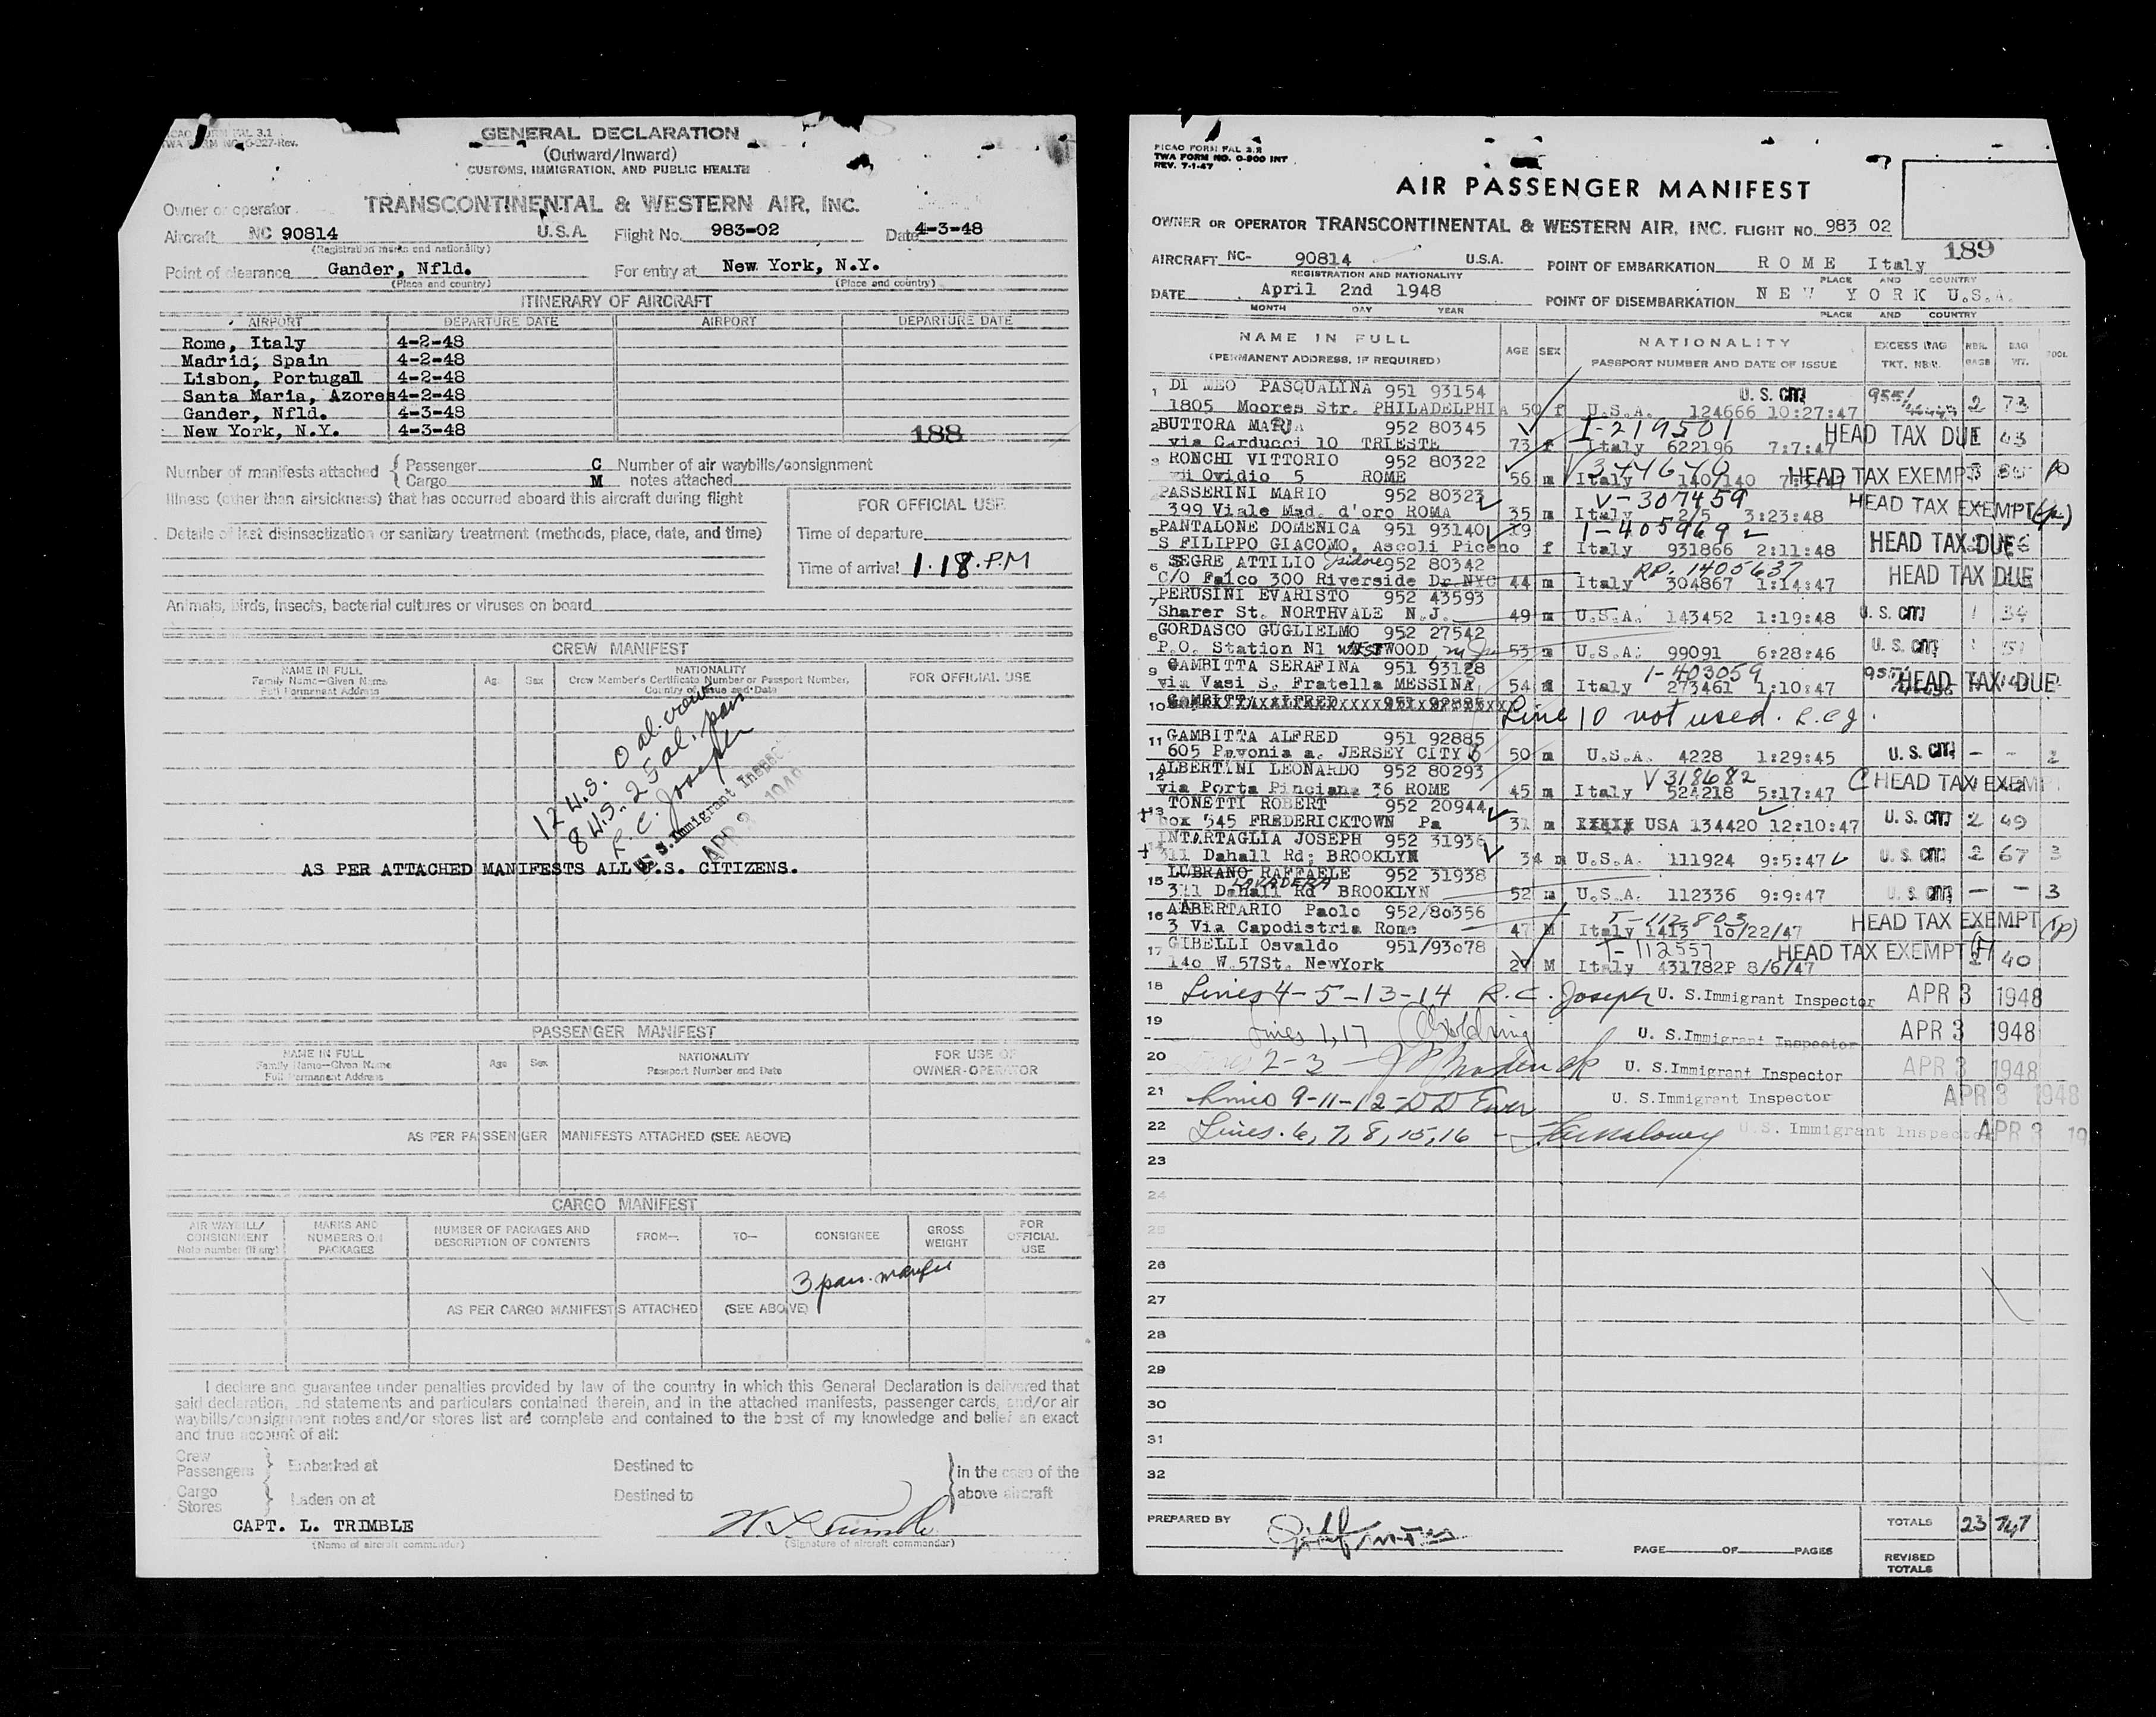 PICAO FORM FAL 3.1
TWA FORM NO. O-227-Rev.
GENERAL DECLARATION
(Outward/Inward)
CUSTOMS, IMMIGRATION, AND PUBLIC HEALTH
Owner or operator TRANSCONTINENTAL & WESTERN AIR, INC.
Aircraft NC 90814 U.S.A. Flight No. 983-02 Date 4-3-48
(Registration marks and nationality)
Point of clearance Gander, Nfld. For entry at New York, N.Y.
(Place and country) (Place and country)
ITINERARY OF AIRCRAFT
AIRPORT DEPARTURE DATE AIRPORT DEPARTURE DATE
Rome, Italy 4-2-48
Madrid, Spain 4-2-48
Lisbon, Portugal 4-2-48
Santa Maria, Azores 4-2-48
Gander, Nfld. 4-3-48
New York, N.Y. 4-3-48
188
Number of manifests attached { Passenger C Number of air waybills/consignment
Cargo M notes attached
Illness (other than airsickness) that has occurred aboard this aircraft during flight
FOR OFFICIAL USE
Details of last disinsectization or sanitary treatment (methods, place, date, and time)
Time of departure
Time of arrival 1.18.P.M
Animals, birds, insects, bacterial cultures or viruses on board
CREW MANIFEST
NAME IN FULL
Family Name—Given Name
Full Permanent Address
Age Sex
NATIONALITY
Crew Member's Certificate Number or Passport Number,
Country of Issue and Date
FOR OFFICIAL USE
12 U.S. 0 al. crew
8 U.S. 25 al. pass
R. C. Joseph
U. S. Immigrant Inspector
APR 3 1948
AS PER ATTACHED MANIFESTS ALL U.S. CITIZENS.
PASSENGER MANIFEST
NAME IN FULL
Family Name—Given Name
Full Permanent Address
Age Sex
NATIONALITY
Passport Number and Date
FOR USE OF
OWNER-OPERATOR
AS PER PASSENGER MANIFESTS ATTACHED (SEE ABOVE)
CARGO MANIFEST
AIR WAYBILL/
CONSIGNMENT
Note number (if any)
MARKS AND
NUMBERS ON
PACKAGES
NUMBER OF PACKAGES AND
DESCRIPTION OF CONTENTS
FROM—
TO—
CONSIGNEE
GROSS
WEIGHT
FOR
OFFICIAL
USE
3 pass. manifes
AS PER CARGO MANIFESTS ATTACHED (SEE ABOVE)
I declare and guarantee under penalties provided by law of the country in which this General Declaration is delivered that
said declaration, and statements and particulars contained therein, and in the attached manifests, passenger cards, and/or air
waybills/consignment notes and/or stores list are complete and contained to the best of my knowledge and belief an exact
and true account of all:
Crew
Passengers } Embarked at Destined to
Cargo
Stores } Laden on at Destined to
} in the case of the
above aircraft
CAPT. L. TRIMBLE
(Name of aircraft commander) (Signature of aircraft commander)
PICAO FORM FAL 3.2
TWA FORM NO. O-900 INT
REV. 7-1-47
AIR PASSENGER MANIFEST
OWNER OR OPERATOR TRANSCONTINENTAL & WESTERN AIR, INC. FLIGHT NO. 983 02
189
AIRCRAFT NC- 90814 U.S.A. POINT OF EMBARKATION ROME Italy
REGISTRATION AND NATIONALITY PLACE AND COUNTRY
DATE April 2nd 1948 POINT OF DISEMBARKATION NEW YORK U.S.A.
MONTH DAY YEAR PLACE AND COUNTRY
NAME IN FULL
(PERMANENT ADDRESS, IF REQUIRED)
AGE SEX
NATIONALITY
PASSPORT NUMBER AND DATE OF ISSUE
EXCESS BAG
TKT. NBR.
NBR. BAGS
BAG WT.
1 DI MEO PASQUALYNA 951 93154 U. S. CIT.
1805 Moores Str. PHILADELPHIA 50 f U.S.A. 124666 10:27:47 2 73
2 BUTTORA MARIA 952 80345 I-219501 HEAD TAX DUE
via Carducci 10 TRIESTE 73 f Italy 622196 7:7:47 43
3 RONCHI VITTORIO 952 80322 V344640 HEAD TAX EXEMPT
Ovidio 5 ROME 56 m Italy 140/140
4 PASSERINI MARIO 952 80323 V-307459 HEAD TAX EXEMPT
399 Viale Mad. d'oro ROMA 35 m Italy 2/5 3:23:48
5 PANTALONE DOMENICA 951 93140 19 I-405969
S FILIPPO GIACOMO, Ascoli Piceno f Italy 931866 2:11:48 HEAD TAX DUE
6 SEGRE ATTILIO Isidore 952 80342 RP. 1405637
C/O Falco 300 Riverside Dr. NYC 44 m Italy 304867 1:14:47 HEAD TAX DUE
7 PERUSINI EVARISTO 952 43593
Sharer St. NORTHVALE N.J. 49 m U.S.A. 143452 1:19:48 U. S. CIT. 1 34
8 GORDASCO GUGLIELMO 952 27542
P.O. Station N1 WESTWOOD, 53 m U.S.A. 99091 6:28:46 U. S. CIT. 1
9 GAMBITTA SERAFINA 951 93128 1-403059
via Vasi S. Fratella MESSINA 54 f Italy 273461 1:10:47 HEAD TAX DUE
10 Line 10 not used. R.C.J.
11 GAMBITTA ALFRED 951 92885
605 Pavonia a. JERSEY CITY 50 m U.S.A. 4228 1:29:45 U. S. CIT. - - 2
12 ALBERTINI LEONARDO 952 80293 V318682
via Porta Pinciana 36 ROME 45 m Italy 524218 5:17:47 C HEAD TAX EXEMPT
13 TONETTI ROBERT 952 20944
box 545 FREDERICKTOWN Pa 31 m USA 134420 12:10:47 U. S. CIT. 2 49
14 INTARTAGLIA JOSEPH 952 31936
311 Dahall Rd; BROOKLYN 34 m U.S.A. 111924 9:5:47 U. S. CIT. 2 67 3
15 LUBRANO RAFFAELE 952 31938
311 Dahall Rd BROOKLYN 52 m U.S.A. 112336 9:9:47 U. S. CIT. — — 3
16 ALBERTARIO Paolo 952/80356 T-112803
3 Via Capodistria Rome 47 M Italy 1413 10/22/47 HEAD TAX EXEMPT
17 GIBELLI Osvaldo 951/93078 T-112557
140 W.57St. NewYork 29 M Italy 431782P 8/6/47 HEAD TAX EXEMPT 40
18 Lines 4-5-13-14 R. C. Joseph U. S.Immigrant Inspector APR 3 1948
19 Lines 1, 17 U. S.Immigrant Inspector APR 3 1948
20 Lines 2-3 U. S.Immigrant Inspector APR 3 1948
21 Lines 9-11-12 U. S.Immigrant Inspector APR 3 1948
22 Lines. 6, 7, 8, 15, 16 U. S. Immigrant Inspector APR 3 19
23
24
25
26
27
28
29
30
31
32
PREPARED BY
PAGE OF PAGES
TOTALS 23 747
REVISED
TOTALS